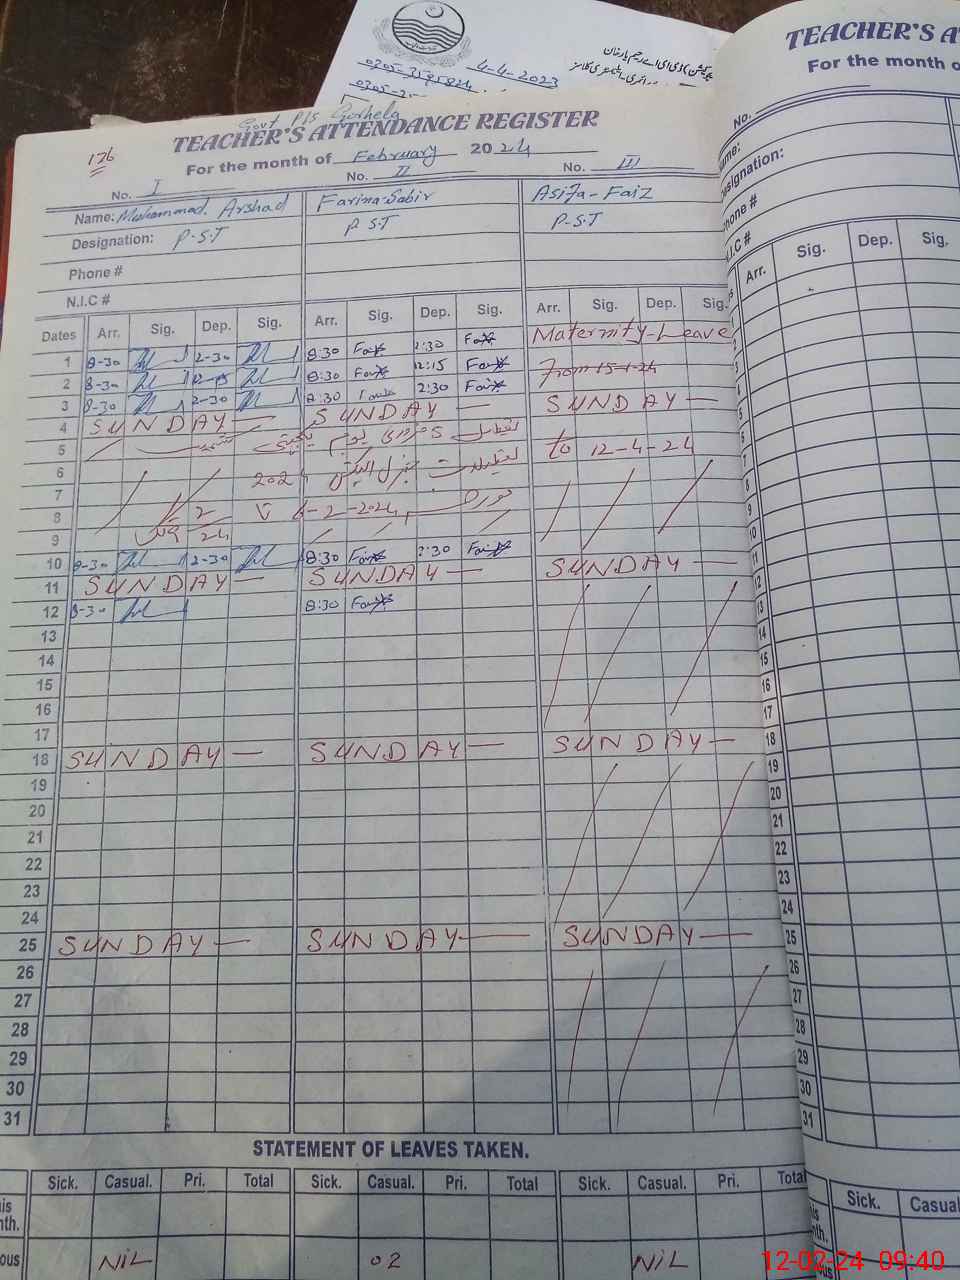 4-4-2023
0305-3595824
Govt P/S Gorhela
TEACHER'S ATTENDANCE REGISTER
176
For the month of February 2024
No. I No. II No. III
Name: Muhammad Arshad Farina Sabir Asifa-Faiz
Designation: P-S-T P S.T P-S.T
Phone #
N.I.C #
Dates Arr. Sig. Dep. Sig. Arr. Sig. Dep. Sig. Arr. Sig. Dep. Sig.
1 8-30 2-30 8:30 2:30 Maternity-Leave
2 8-30 12-15 8:30 12:15 From 15-1-24
3 8-30 2-30 8:30 2:30 SUNDAY —
4 SUNDAY — SUNDAY —
5 تعطیل 5 فروری یوم یکجہتی کشمیر to 12-4-24
6 تعطیلات جنرل الیکشن 2024
7
8 مورخہ 6-2-2024 تا
9
10 8-30 2-30 8:30 2:30 SUNDAY —
11 SUNDAY — SUNDAY —
12 8-30 8:30
13
14
15
16
17
18 SUNDAY — SUNDAY — SUNDAY —
19
20
21
22
23
24
25 SUNDAY — SUNDAY — SUNDAY —
26
27
28
29
30
31
STATEMENT OF LEAVES TAKEN.
Sick. Casual. Pri. Total Sick. Casual. Pri. Total Sick. Casual. Pri. Total
NiL 02 NiL
TEACHER'S A
For the month o
No.
Name:
Designation:
Phone #
N.I.C #
Arr. Sig. Dep. Sig.
2
3
4
5
6
7
8
9
10
11
12
13
14
15
16
17
18
19
20
21
22
23
24
25
26
27
28
29
30
31
Sick. Casual
12-02-24 09:40